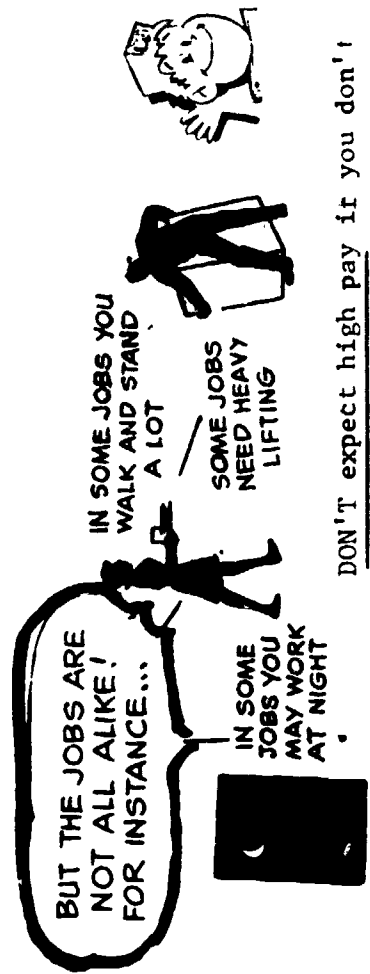 BUT THE JOBS ARE
NOT ALL ALIKE!
FOR INSTANCE...
IN SOME
JOBS YOU
MAY WORK
AT NIGHT
IN SOME JOBS YOU
WALK AND STAND
A LOT
SOME JOBS
NEED HEAVY
LIFTING
DON'T expect high pay if you don't